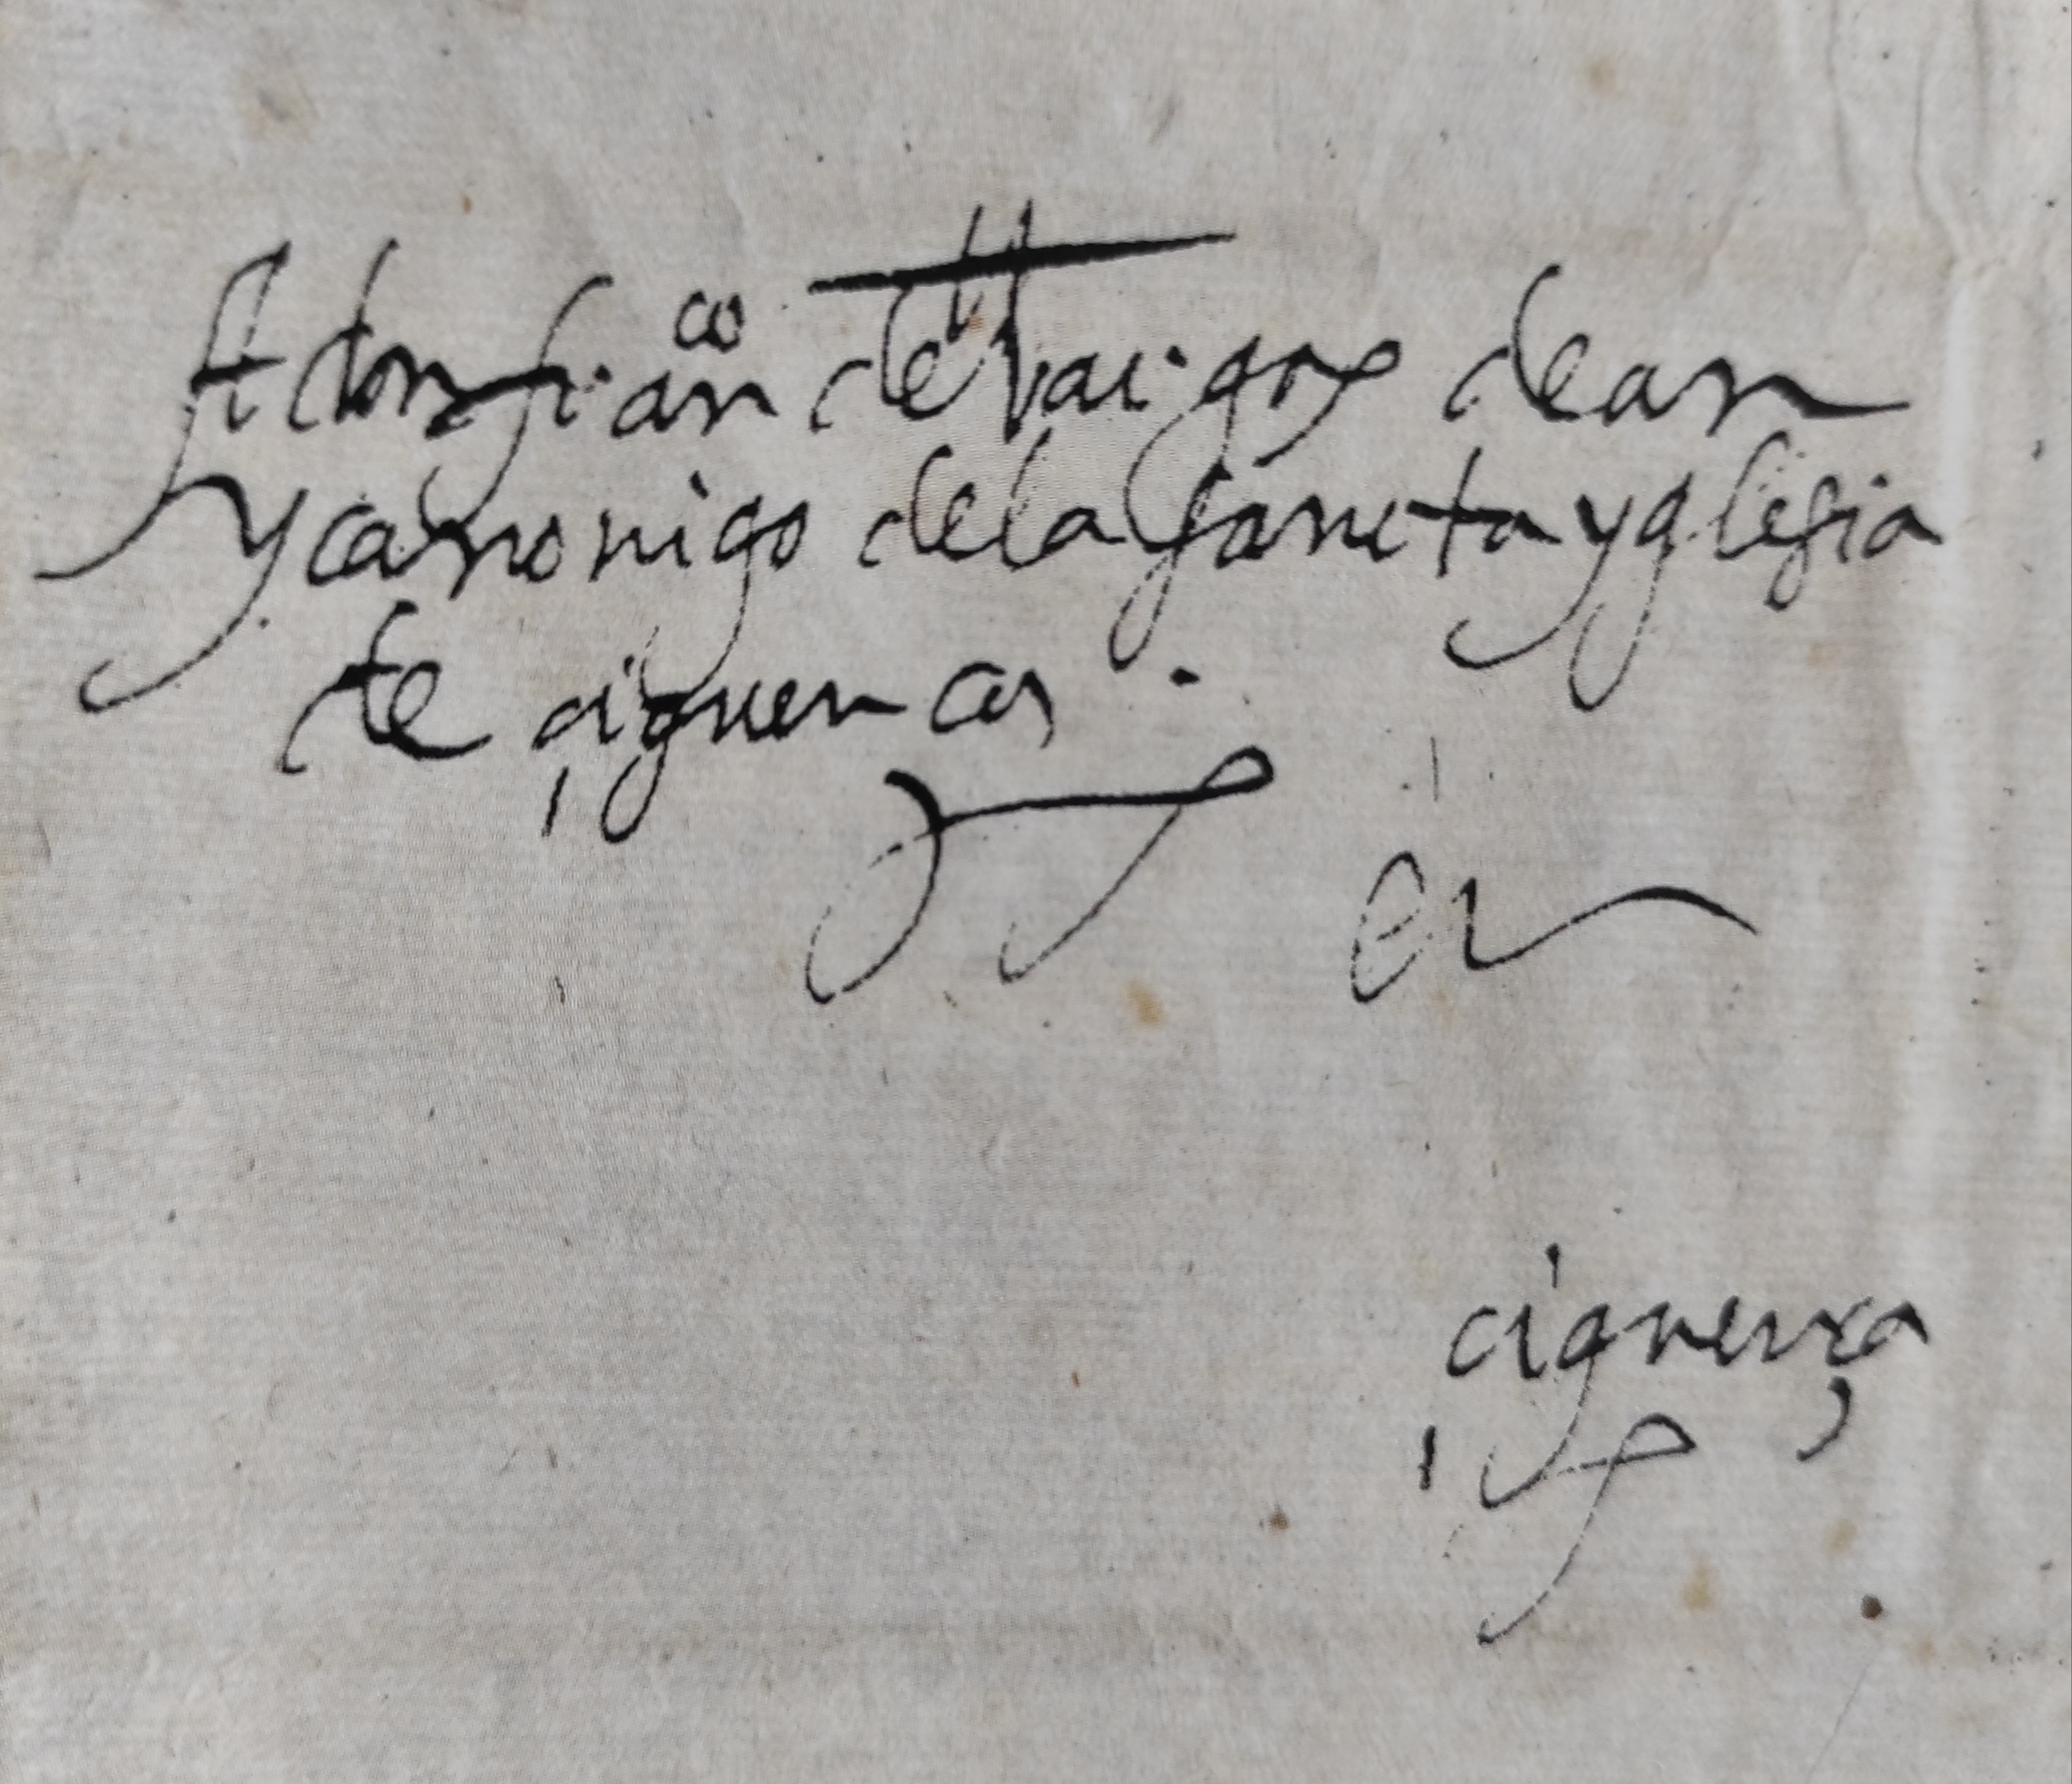 A don fran co de Vargas dean
y canonigo de la Sancta yglesia
de çiguença .
en
çiguença